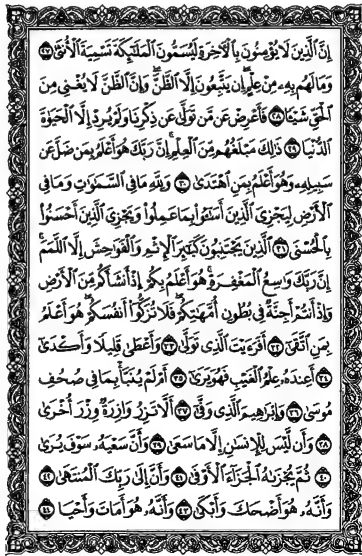 إِنَّ الَّذِينَ لَا يُؤْمِنُونَ بِالْآخِرَةِ لَيُسَمُّونَ الْمَلَائِكَةَ تَسْمِيَةَ الْأُنْثَىٰ ٢٧
وَمَا لَهُمْ بِهِ مِنْ عِلْمٍ إِنْ يَتَّبِعُونَ إِلَّا الظَّنَّ وَإِنَّ الظَّنَّ لَا يُغْنِي مِنَ
الْحَقِّ شَيْئًا ٢٨ فَأَعْرِضْ عَنْ مَنْ تَوَلَّىٰ عَنْ ذِكْرِنَا وَلَمْ يُرِدْ إِلَّا الْحَيَوٰةَ
الدُّنْيَا ٢٩ ذَٰلِكَ مَبْلَغُهُمْ مِنَ الْعِلْمِ إِنَّ رَبَّكَ هُوَ أَعْلَمُ بِمَنْ ضَلَّ عَنْ
سَبِيلِهِ وَهُوَ أَعْلَمُ بِمَنِ اهْتَدَىٰ ٣٠ وَلِلَّهِ مَا فِي السَّمَوَاتِ وَمَا فِي
الْأَرْضِ لِيَجْزِيَ الَّذِينَ أَسَاءُوا بِمَا عَمِلُوا وَيَجْزِيَ الَّذِينَ أَحْسَنُوا
بِالْحُسْنَى ٣١ الَّذِينَ يَجْتَنِبُونَ كَبَائِرَ الْإِثْمِ وَالْفَوَاحِشَ إِلَّا اللَّمَمَ
إِنَّ رَبَّكَ وَاسِعُ الْمَغْفِرَةِ هُوَ أَعْلَمُ بِكُمْ إِذْ أَنْشَأَكُمْ مِنَ الْأَرْضِ
وَإِذْ أَنْتُمْ أَجِنَّةٌ فِي بُطُونِ أُمَّهَاتِكُمْ فَلَا تُزَكُّوا أَنْفُسَكُمْ هُوَ أَعْلَمُ
بِمَنِ اتَّقَىٰ ٣٢ أَفَرَأَيْتَ الَّذِي تَوَلَّىٰ ٣٣ وَأَعْطَىٰ قَلِيلًا وَأَكْدَىٰ
٣٤ أَعِنْدَهُ عِلْمُ الْغَيْبِ فَهُوَ يَرَىٰ ٣٥ أَمْ لَمْ يُنَبَّأْ بِمَا فِي صُحُفِ
مُوسَىٰ ٣٦ وَإِبْرَاهِيمَ الَّذِي وَفَّىٰ ٣٧ أَلَّا تَزِرُ وَازِرَةٌ وِزْرَ أُخْرَىٰ
٣٨ وَأَنْ لَيْسَ لِلْإِنْسَانِ إِلَّا مَا سَعَىٰ ٣٩ وَأَنَّ سَعْيَهُ سَوْفَ يُرَىٰ
٤٠ ثُمَّ يُجْزَاهُ الْجَزَاءَ الْأَوْفَىٰ ٤١ وَأَنَّ إِلَىٰ رَبِّكَ الْمُنْتَهَىٰ ٤٢
وَأَنَّهُ هُوَ أَضْحَكَ وَأَبْكَىٰ ٤٣ وَأَنَّهُ هُوَ أَمَاتَ وَأَحْيَا ٤٤